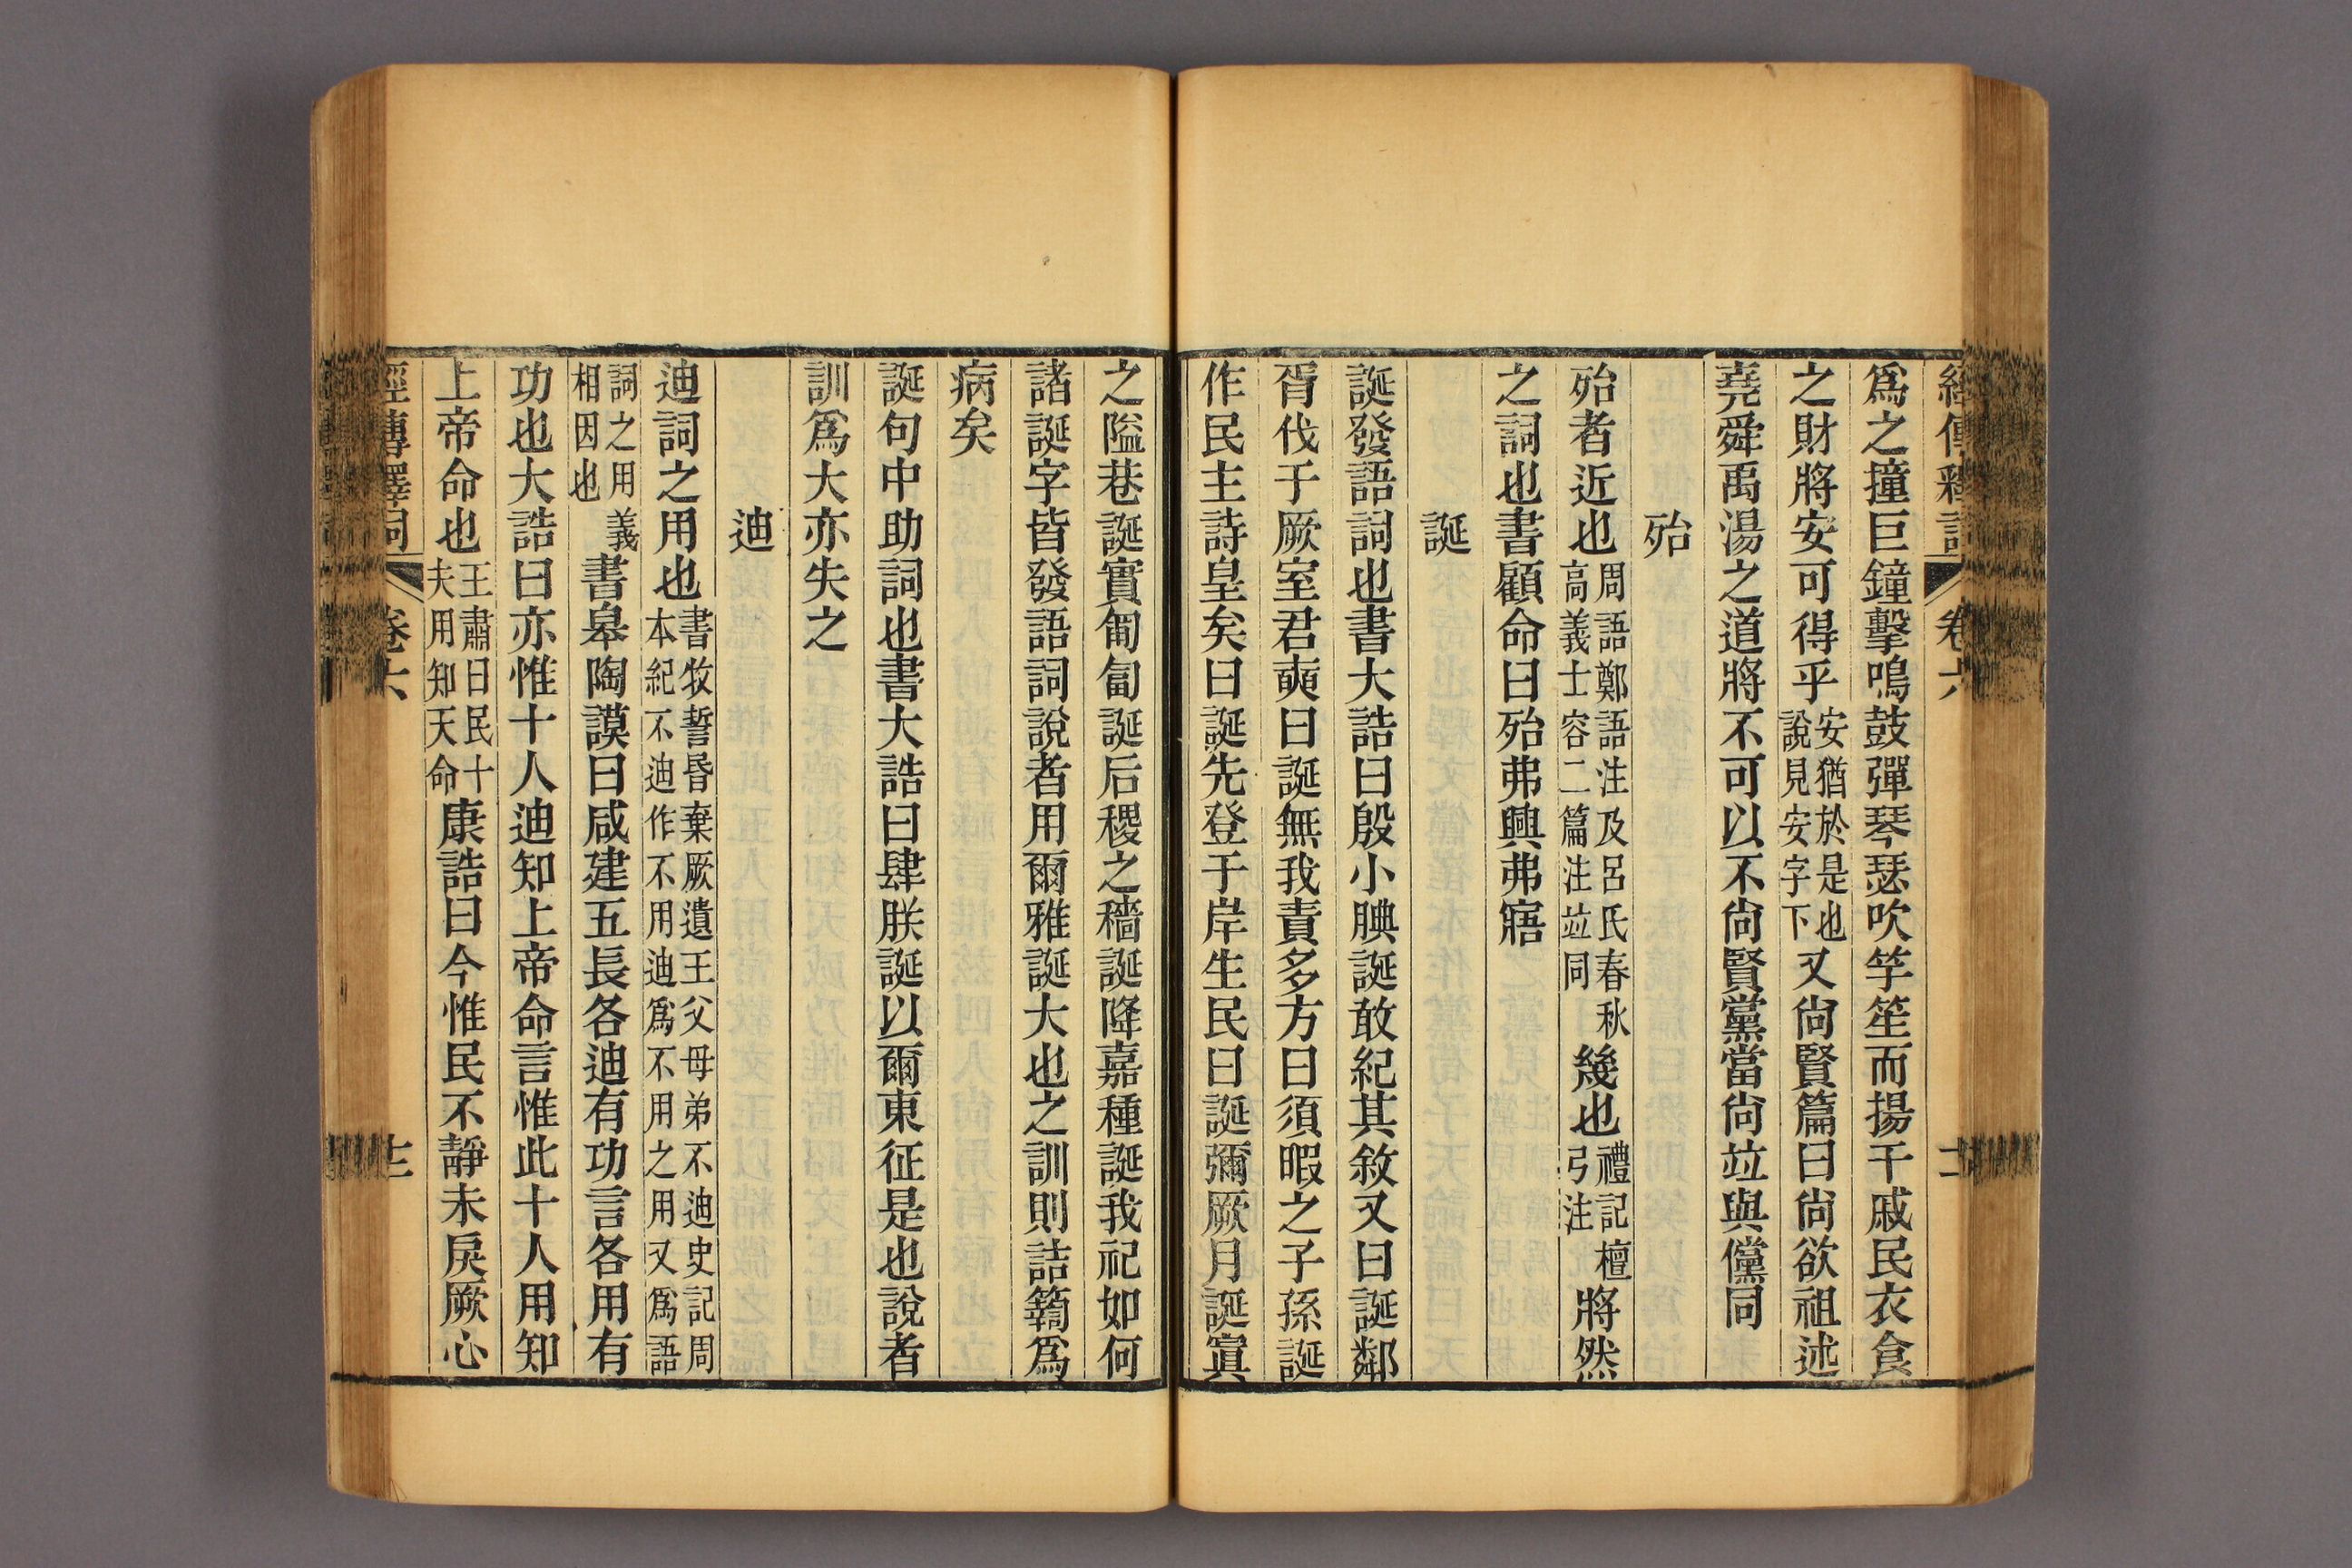 經傳釋詞 卷六
爲之撞巨鐘擊鳴鼓彈琴瑟吹竽笙而揚干戚民衣食
之財將安可得乎安猶於是也說見安字下又尙賢篇曰尙欲祖述
堯舜禹湯之道將不可以不尙賢黨當尙竝與儻同
殆
殆者近也周語鄭語注及呂氏春秋高義士容二篇注竝同幾也禮記檀弓注將然
之詞也書顧命曰殆弗興弗寤
誕
誕發語詞也書大誥曰殷小腆誕敢紀其敘又曰誕鄰
胥伐于厥室君奭曰誕無我責多方曰須暇之子孫誕
作民主詩皇矣曰誕先登于岸生民曰誕彌厥月誕寘
之隘巷誕實匍匐誕后稷之穡誕降嘉種誕我祀如何
諸誕字皆發語詞說者用爾雅誕大也之訓則詰𥷚爲
病矣
誕句中助詞也書大誥曰肆朕誕以爾東征是也說者
訓爲大亦失之
迪
迪詞之用也書牧誓昬棄厥遺王父母弟不迪史記周本紀不迪作不用迪爲不用之用又爲語
詞之用義相因也書皋陶謨曰咸建五長各迪有功言各用有
功也大誥曰亦惟十人迪知上帝命言惟此十人用知
上帝命也王肅曰民十夫用知天命康誥曰今惟民不靜未戾厥心
經傳釋詞 卷六